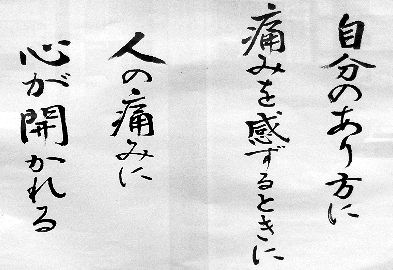 自分のあり方に
痛みを感ずるときに
人の痛みに
心が開かれる